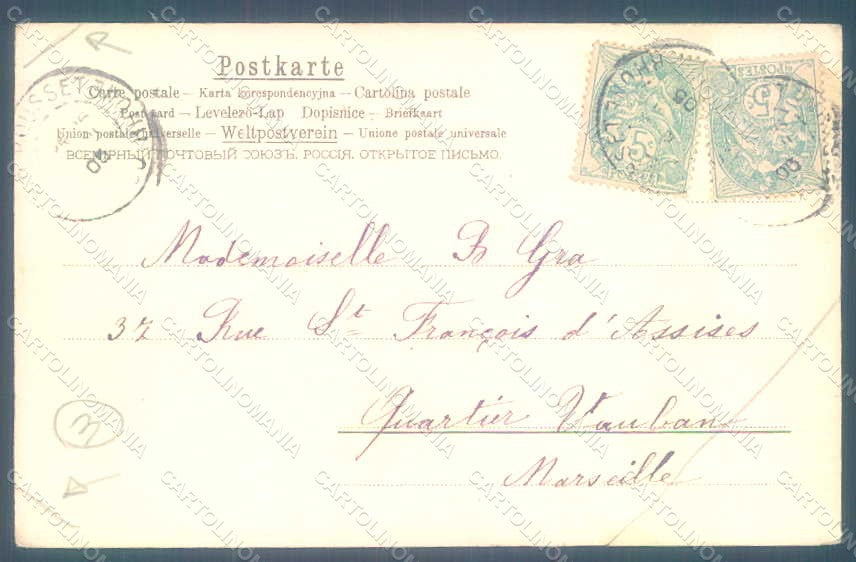 Postkarte
Carte postale – Karta korespondencyjna – Cartolina postale
Post card – Levelező-Lap Dopisnice – Briefkaart
Union postale universelle – Weltpostverein – Unione postale universale
ВСЕМІРНЫЙ ПОЧТОВЫЙ СОЮЗЪ. РОССІЯ. ОТКРЫТОЕ ПИСЬМО.
5c
POSTES
5c
RHONE
05
05
Mademoiselle B Gra
32 Rue St François d'Assises
Quartier Vauban
Marseille
3
CARTOLINOMANIA